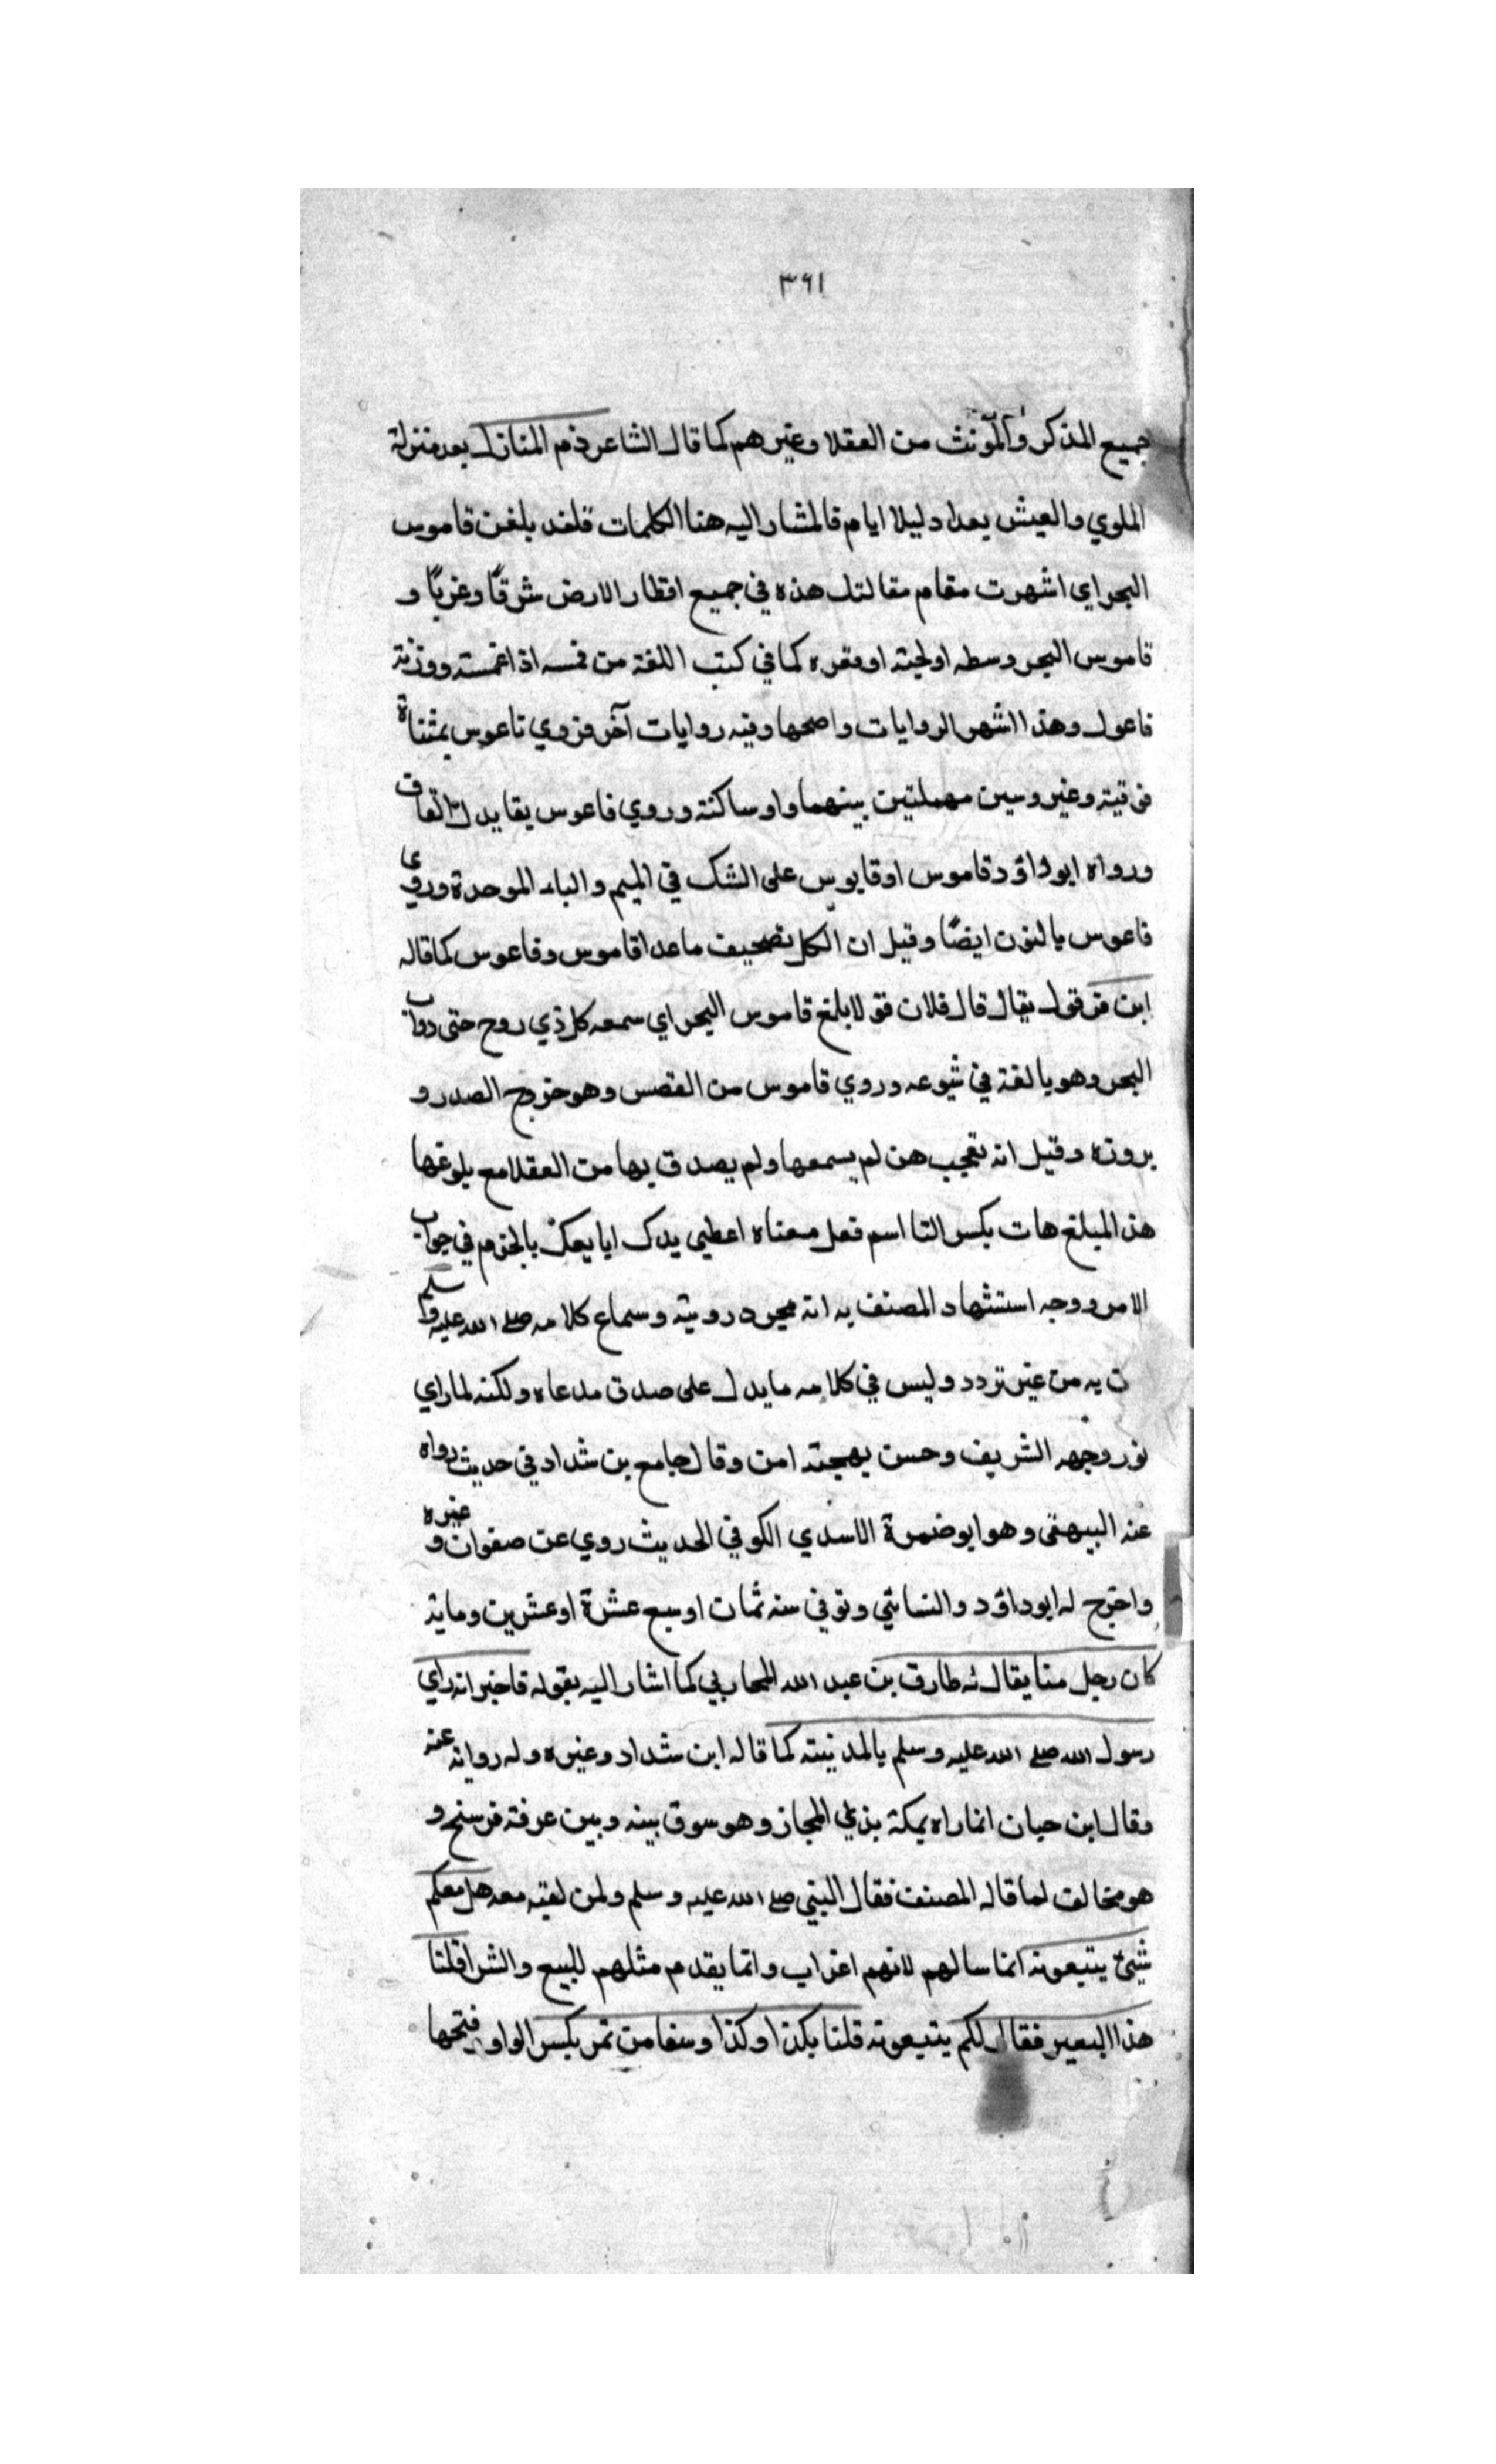 ٣٦١
جميع المذكر والمؤنث من العقلا وغيرهم كما قال الشاعر ذم المنازل بعد منزلة
الملوي والعيش بعد اولئك ايام فالمشار اليه هنا الكلمات فلقد بلغن قاموس
البحر اي اشهرت مقام مقالتك هذه في جميع اقطار الارض شرقًا وغربًا و
قاموس البحر وسطه او لجته او مقره كما في كتب اللغة من قمسه اذا غمسته ووزنه
فاعول وهذا اشهر الروايات واصحها وفيه روايات آخر فروي تاعوس بمثناة
فوقية وعين وسين مهملتين بينهما واو ساكنة وروي فاعوس بفا بدل القاف
ورواه ابو داؤد قاموس او قابوس على الشك في الميم والباء الموحدة وروي
ناعوس بالنون ايضًا وقيل ان الكل تصحيف ما عدا قاموس وفاعوس كما قاله
ابن قرقول يقال قال فلان قولا بلغ قاموس البحر اي سمعه كل ذي روح حتى دواب
البحر وهو بالغة في شيوعه وروي قاموس من القعس وهو خروج الصدر و
بروزه وقيل انه تعجب من لم يسمعها ولم يصدق بها من العقلا مع بلوغها
هذا المبلغ هات بكسر التا اسم فعل معناه اعطي يدك ابايعك بالجزم في جواب
الامر ووجه استشهاد المصنف به انه بمجرد رويته وسماع كلامه صلى الله عليه وسلم
ن به من غير تردد وليس في كلامه ما يدل على صدق مدعاه ولكنه لما راي
نور وجهه الشريف وحسن بهجته امن وقال جامع بن شداد في حديث رواه
عنه البيهقى وهو ابو ضمرة الاسدي الكوفي الحديث روي عن صفوان وغيره
واخرج له ابو داؤد والنسائي وتوفي سنه ثمان او سبع عشرة او عشرين وماية
كان رجل منا يقال له طارق بن عبد الله المحاربي كما اشار اليه بقوله فاخبر انه راي
رسول الله صلى الله عليه وسلم بالمدينة كما قاله ابن شداد وغيره وله رواية عنه
وقال ابن حبان انما راه بمكة بذي المجاز وهو سوق بينه وبين عرفة فرسخ و
هو مخالف لما قاله المصنف فقال النبي صلى الله عليه وسلم ولمن لقيه معه هل معكم
شيئ يتبعونه انما سالهم لانهم اعراب وانما يقدم مثلهم للبيع والشرا قلنا
هذا البعير فقال لكم يتبعونه قلنا بكذا وكذا وسقا من تمر بكسر الواو وفتحها